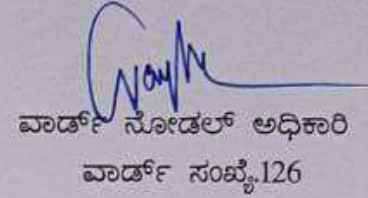 ವಾರ್ಡ್ ನೋಡಲ್ ಅಧಿಕಾರಿ
ವಾರ್ಡ್ ಸಂಖ್ಯೆ.126